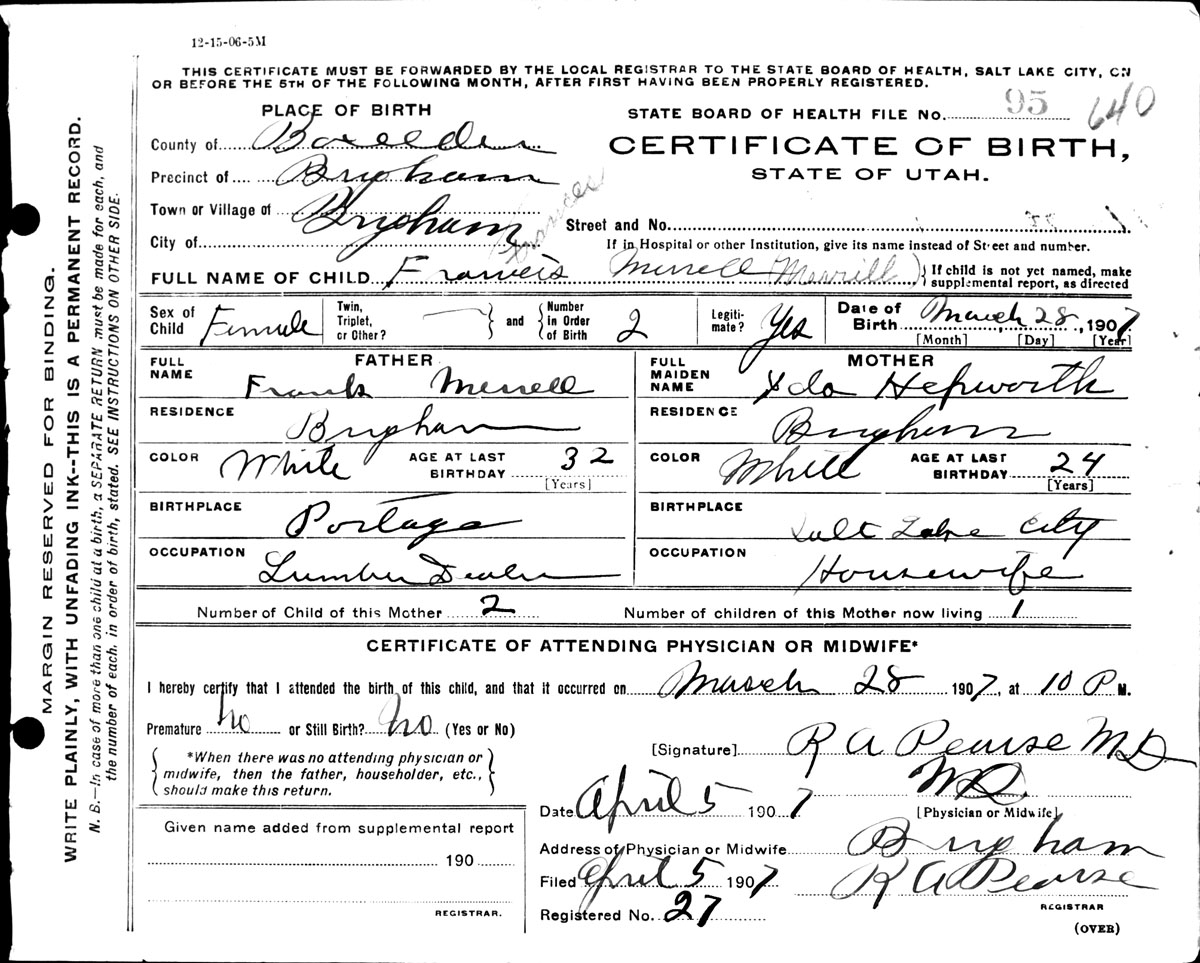 12-15-06-5M
THIS CERTIFICATE MUST BE FORWARDED BY THE LOCAL REGISTRAR TO THE STATE BOARD OF HEALTH, SALT LAKE CITY, ON
OR BEFORE THE 5TH OF THE FOLLOWING MONTH, AFTER FIRST HAVING BEEN PROPERLY REGISTERED.
PLACE OF BIRTH
STATE BOARD OF HEALTH FILE No. 95 640
County of Boxelder
CERTIFICATE OF BIRTH,
STATE OF UTAH.
Precinct of Brigham
Town or Village of Brigham
Street and No.
City of
If in Hospital or other Institution, give its name instead of Street and number.
Frances
FULL NAME OF CHILD Francis Merrell (Merrill) } If child is not yet named, make
supplemental report, as directed
Sex of Child Female
Twin, Triplet, or Other?
and Number in Order of Birth 2
Legiti-mate? Yes
Date of Birth March 28, 1907
[Month] [Day] [Year]
FATHER
FULL NAME Frank Merrell
RESIDENCE Brigham
COLOR White AGE AT LAST BIRTHDAY 32
[Years]
BIRTHPLACE Portage
OCCUPATION Lumber Dealer
MOTHER
FULL MAIDEN NAME Ida Hepworth
RESIDENCE Brigham
COLOR White AGE AT LAST BIRTHDAY 24
[Years]
BIRTHPLACE Salt Lake City
OCCUPATION Housewife
Number of Child of this Mother 2 Number of children of this Mother now living 1
CERTIFICATE OF ATTENDING PHYSICIAN OR MIDWIFE*
I hereby certify that I attended the birth of this child, and that it occurred on March 28 1907, at 10 P M.
Premature No or Still Birth? No (Yes or No)
*When there was no attending physician or
midwife, then the father, householder, etc.,
should make this return.
[Signature] R A Pearse MD
MD
[Physician or Midwife]
Date April 5 1907
Address of Physician or Midwife Brigham
Filed April 5 1907 R A Pearse
REGISTRAR
Registered No. 27
(OVER)
Given name added from supplemental report
190
REGISTRAR.
MARGIN RESERVED FOR BINDING.
WRITE PLAINLY, WITH UNFADING INK--THIS IS A PERMANENT RECORD.
N. B.—In case of more than one child at a birth, a SEPARATE RETURN must be made for each, and
the number of each, in order of birth, stated. SEE INSTRUCTIONS ON OTHER SIDE.